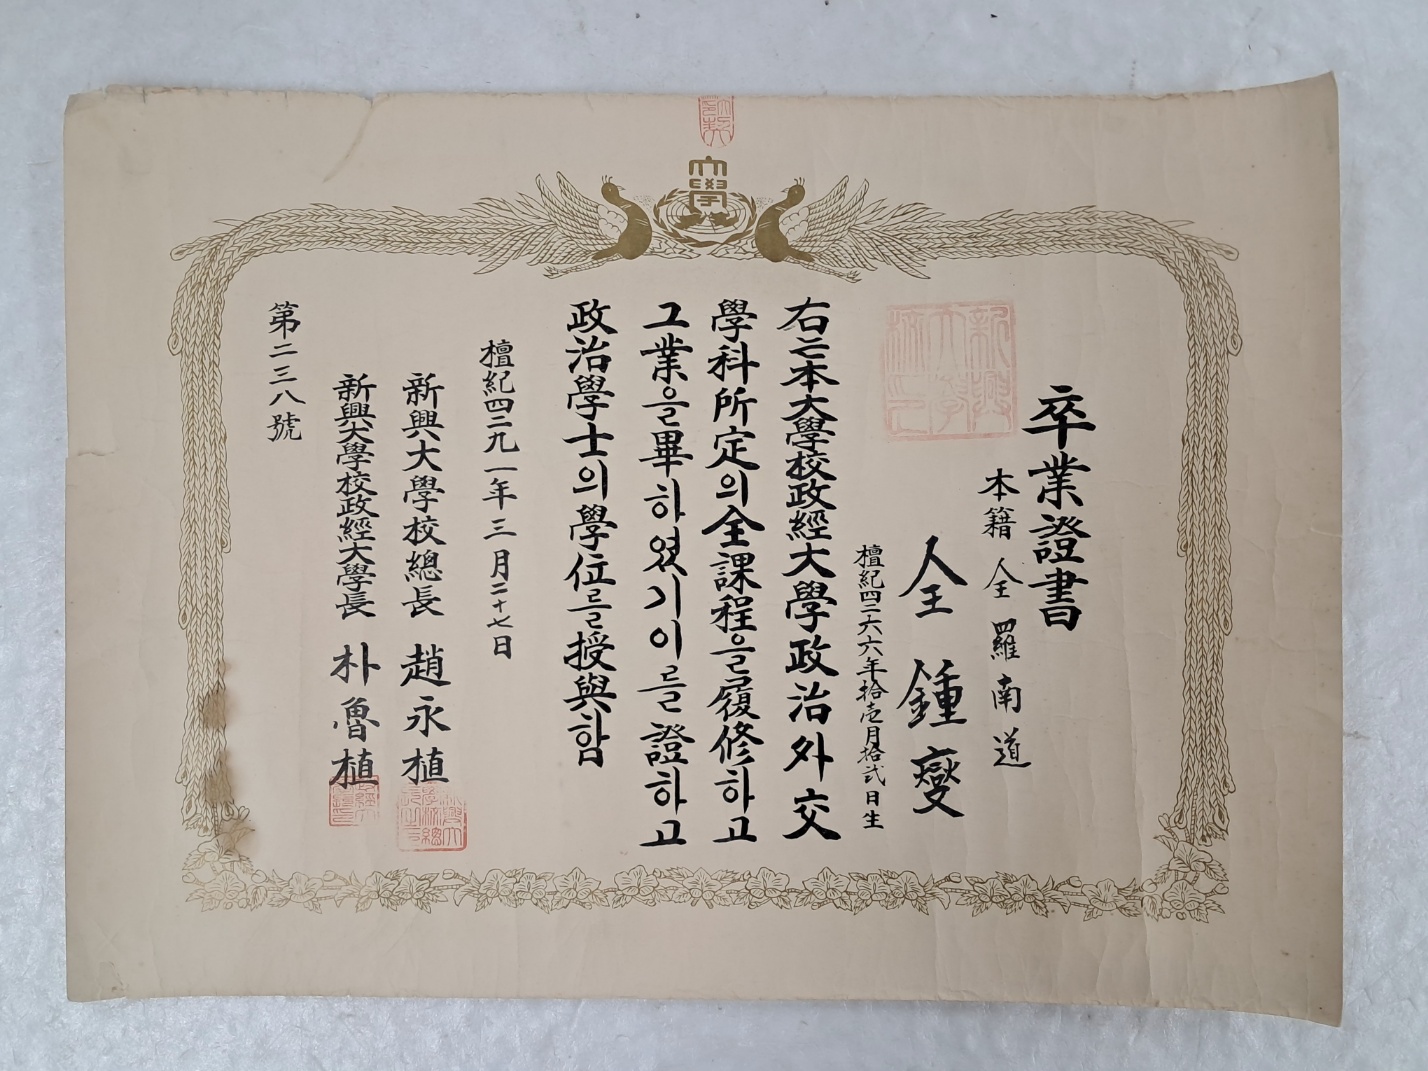 卒業證書
本籍 全羅南道
全鍾燮
檀紀四二六六年拾壱月拾弐日生
右는本大學校政經大學政治外交
學科所定의全課程을履修하고
그業을畢하였기이를證하고
政治學士의學位를授與함
檀紀四二九一年三月二十七日
新興大學校總長 趙永植
新興大學校政經大學長 朴魯植
第二三八號
大學
新興大學校印